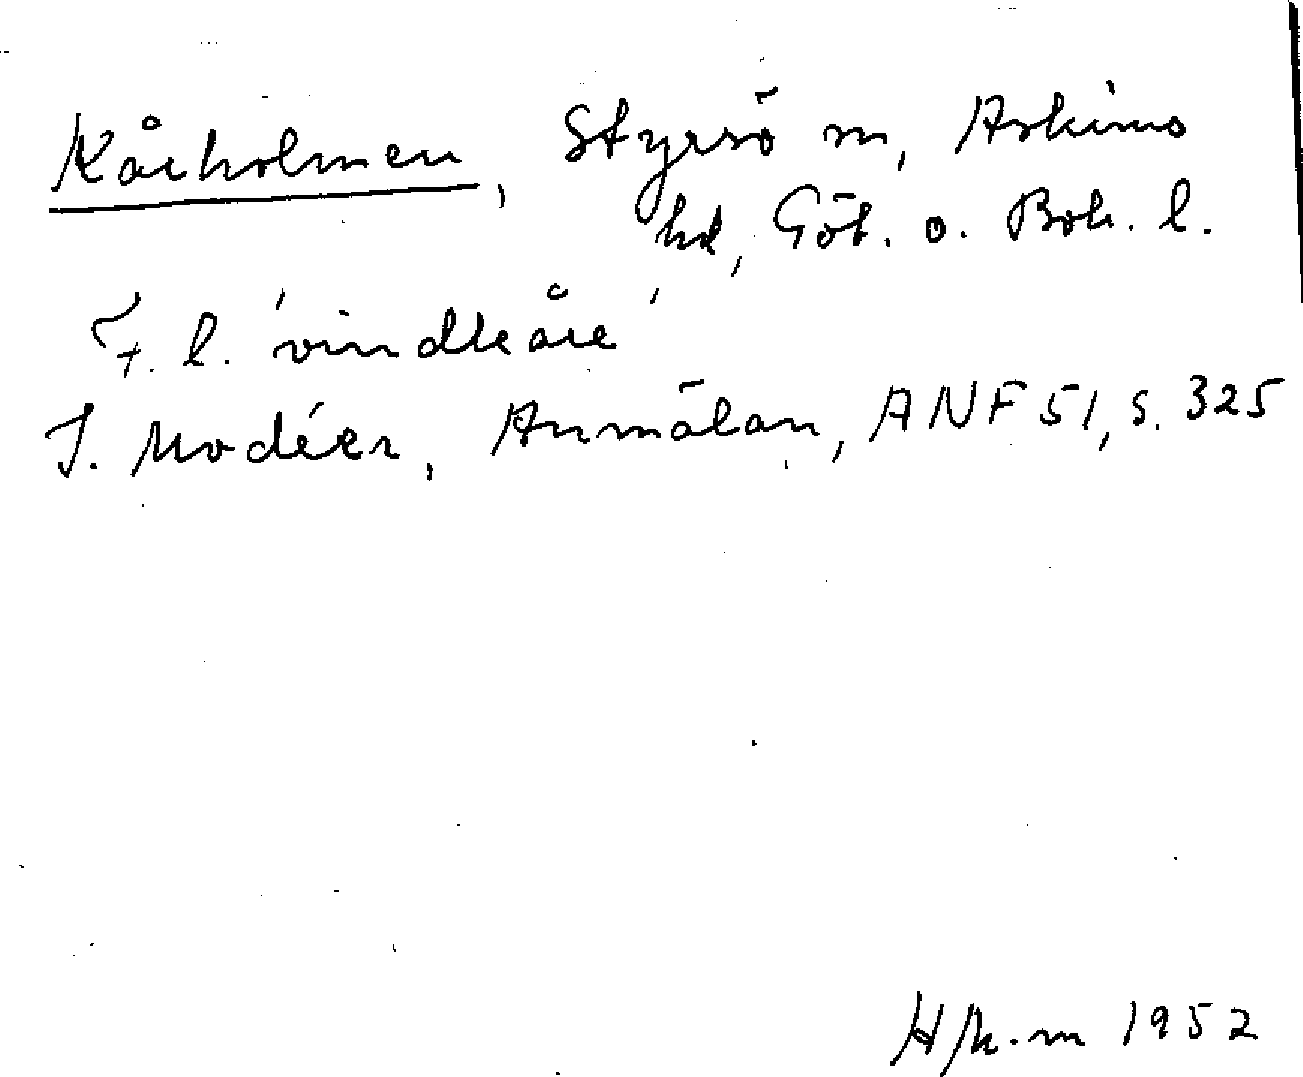 Kårholmen, Styrsö sn, Askims
hd, Göt. o. Boh. l.
F. l. 'vindkåre'
I. Modéer, Anmälan, ANF 51, s. 325
1952